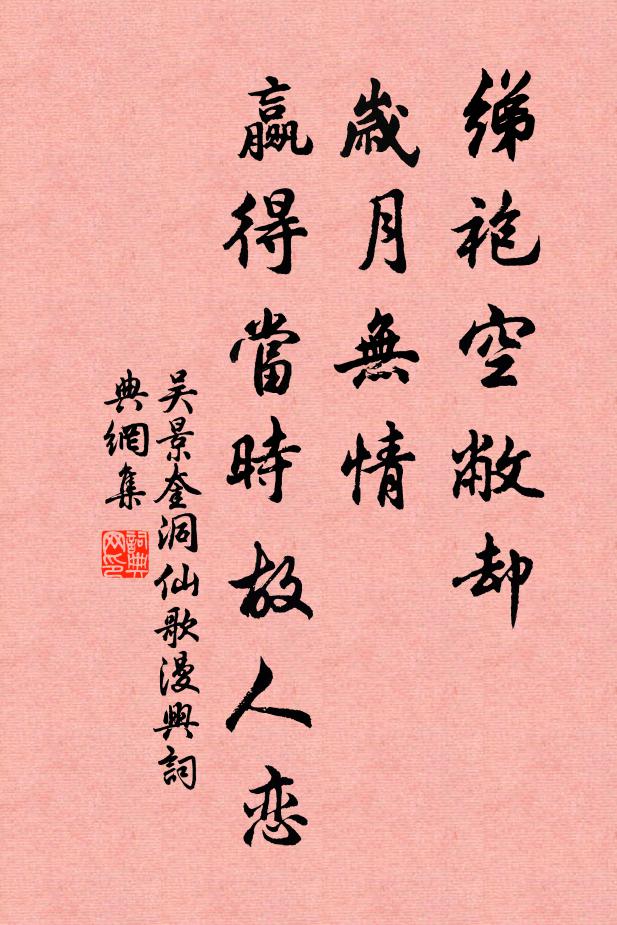 绨袍空敝却
歲月無情
贏得當時故人恋
吴景奎洞仙歌漫興詞
典網集
詞典
网印